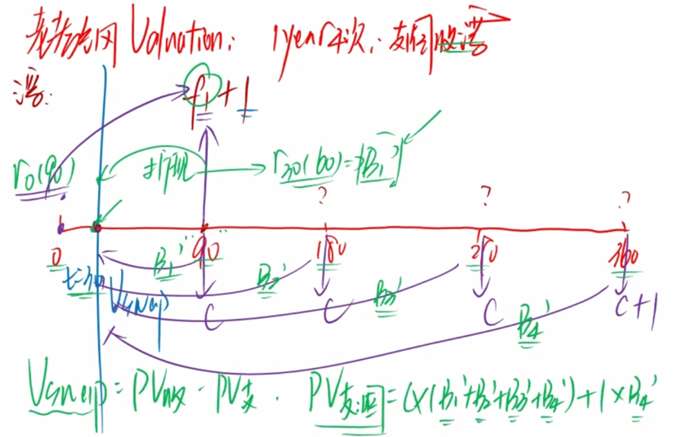 Valuation: 1year4次: 支固收浮
浮: f₁ + 1
r₀(90) 折现 r₃₀(60) ⇒ B₁'
? ? ?
0 90 180 360
t=30 B₁' B₂' B₃' B₄'
Vswap C C C C+1
Vswap = PV收 - PV支. PV支固 = C×(B₁'+B₂'+B₃'+B₄')+1×B₄'